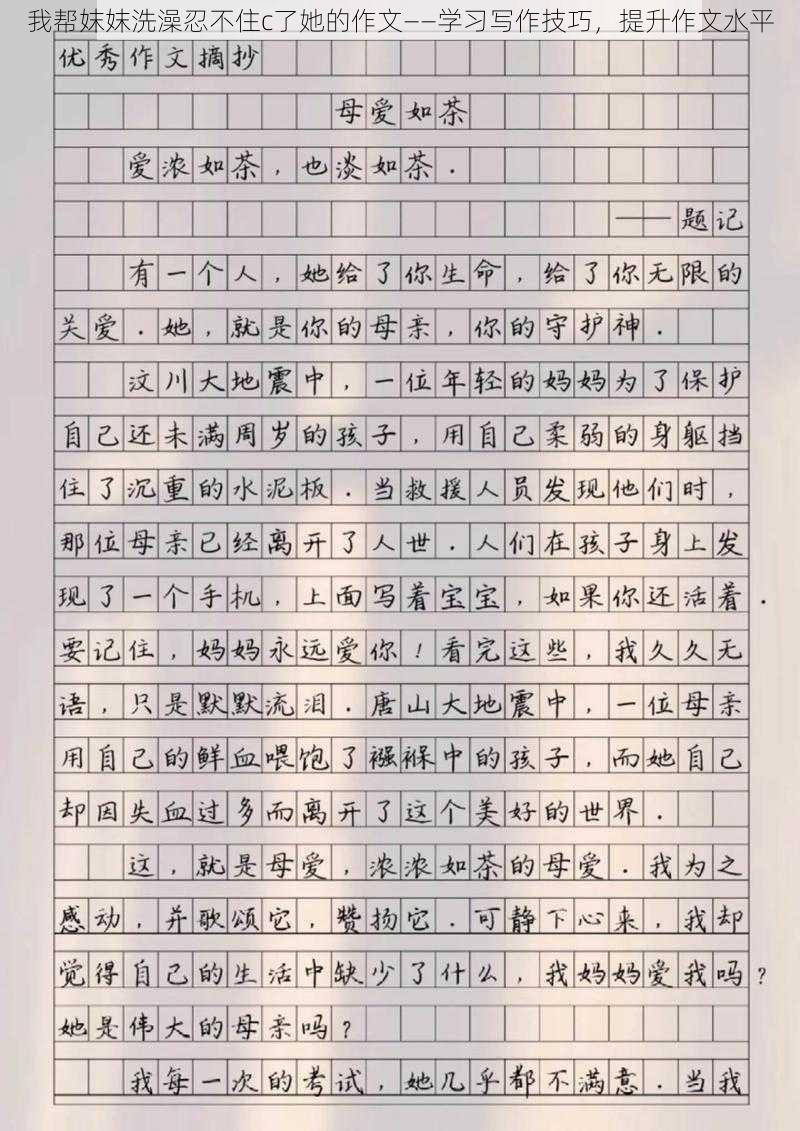 我帮妹妹洗澡忍不住c了她的作文——学习写作技巧，提升作文水平
优秀作文摘抄
母爱如茶
爱浓如茶，也淡如茶．
——题记
有一个人，她给了你生命，给了你无限的
关爱．她，就是你的母亲，你的守护神．
汶川大地震中，一位年轻的妈妈为了保护
自己还未满周岁的孩子，用自己柔弱的身躯挡
住了沉重的水泥板．当救援人员发现他们时，
那位母亲已经离开了人世．人们在孩子身上发
现了一个手机，上面写着宝宝，如果你还活着．
要记住，妈妈永远爱你！看完这些，我久久无
语，只是默默流泪．唐山大地震中，一位母亲
用自己的鲜血喂饱了襁褓中的孩子，而她自己
却因失血过多而离开了这个美好的世界．
这，就是母爱，浓浓如茶的母爱．我为之
感动，并歌颂它，赞扬它．可静下心来，我却
觉得自己的生活中缺少了什么，我妈妈爱我吗？
她是伟大的母亲吗？
我每一次的考试，她几乎都不满意．当我